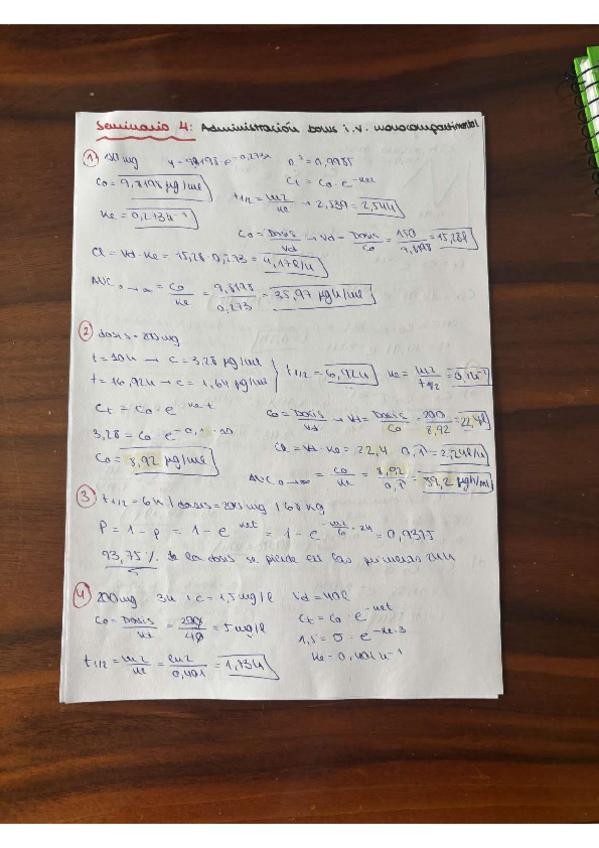 Seminario 4: Administración bolus i.v. monocompartimental
1 150 mg y = 9,8198 · e^-0,273x r² = 0,9985
C0 = 9,8198 µg/ml Ct = C0 · e^-ket
Ke = 0,273 h⁻¹ t1/2 = ln2/Ke → 2,539 = 2,54 h
C0 = Dosis/Vd → Vd = Dosis/C0 = 150/9,8198 = 15,28 l
Cl = Vd · Ke = 15,28 · 0,273 = 4,17 l/h
AUC 0→∞ = C0/Ke = 9,8198/0,273 = 35,97 µg h/ml
2 dosis = 200 mg
t = 10 h → C = 3,28 µg/ml
t = 16,92 h → C = 1,64 µg/ml } t1/2 = 6,92 h Ke = ln2/t1/2 = 0,1 h⁻¹
Ct = C0 · e^-ke·t C0 = Dosis/Vd → Vd = Dosis/C0 = 200/8,92 = 22,4 l
3,28 = C0 · e^-0,1·10 Cl = Vd · Ke = 22,4 · 0,1 = 2,24 l/h
C0 = 8,92 µg/ml AUC 0→∞ = C0/Ke = 8,92/0,1 = 89,2 µg h/ml
3 t1/2 = 6 h / dosis = 200 mg / 68 kg
P = 1 - p = 1 - e^-ket = 1 - e^-ln2/6 · 24 = 0,9375
93,75 % de la dosis se pierde en las primeras 24 h
4 200 mg 3 h → C = 1,5 mg/l Vd = 40 l
C0 = Dosis/Vd = 200/40 = 5 mg/l Ct = C0 · e^-ket
1,5 = 5 · e^-ke·3
t1/2 = ln2/Ke = ln2/0,401 = 1,73 h Ke = 0,401 h⁻¹